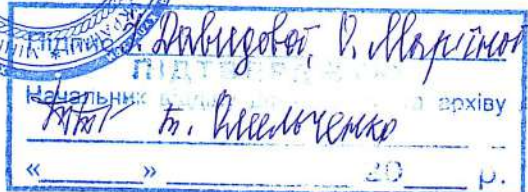 Підпис І. Давидової, О. Мар'їної
ПІДТВЕРДЖУЮ
Начальник відділу архіву
Т. Омельченко
« » 20 р.